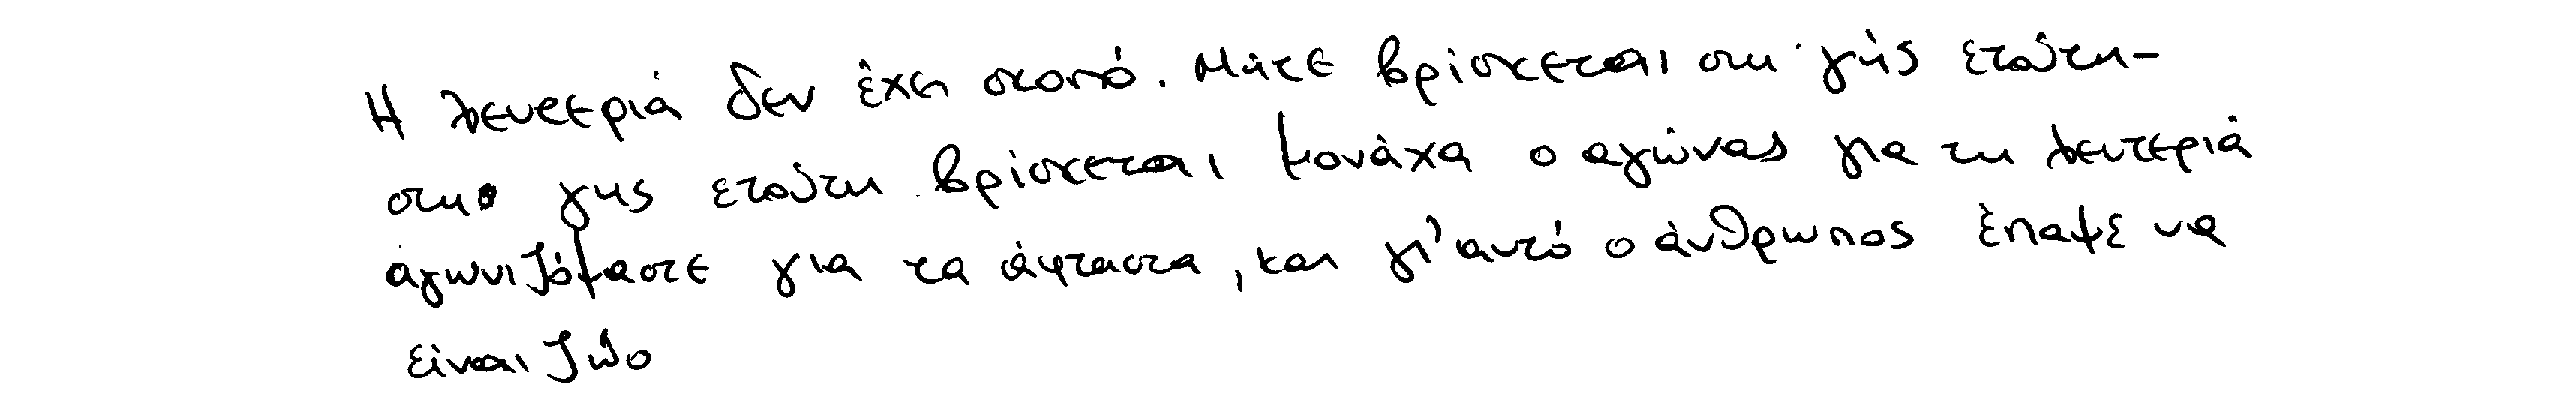 Η λευτεριά δεν έχει σκοπό. Μήτε βρίσκεται στη γής ετούτη-
στη γης ετούτη βρίσκεται μονάχα ο αγώνας για τη λευτεριά
αγωνιζόμαστε για τα άφταστα, και γι' αυτό ο άνθρωπος έπαψε να
είναι ζώο